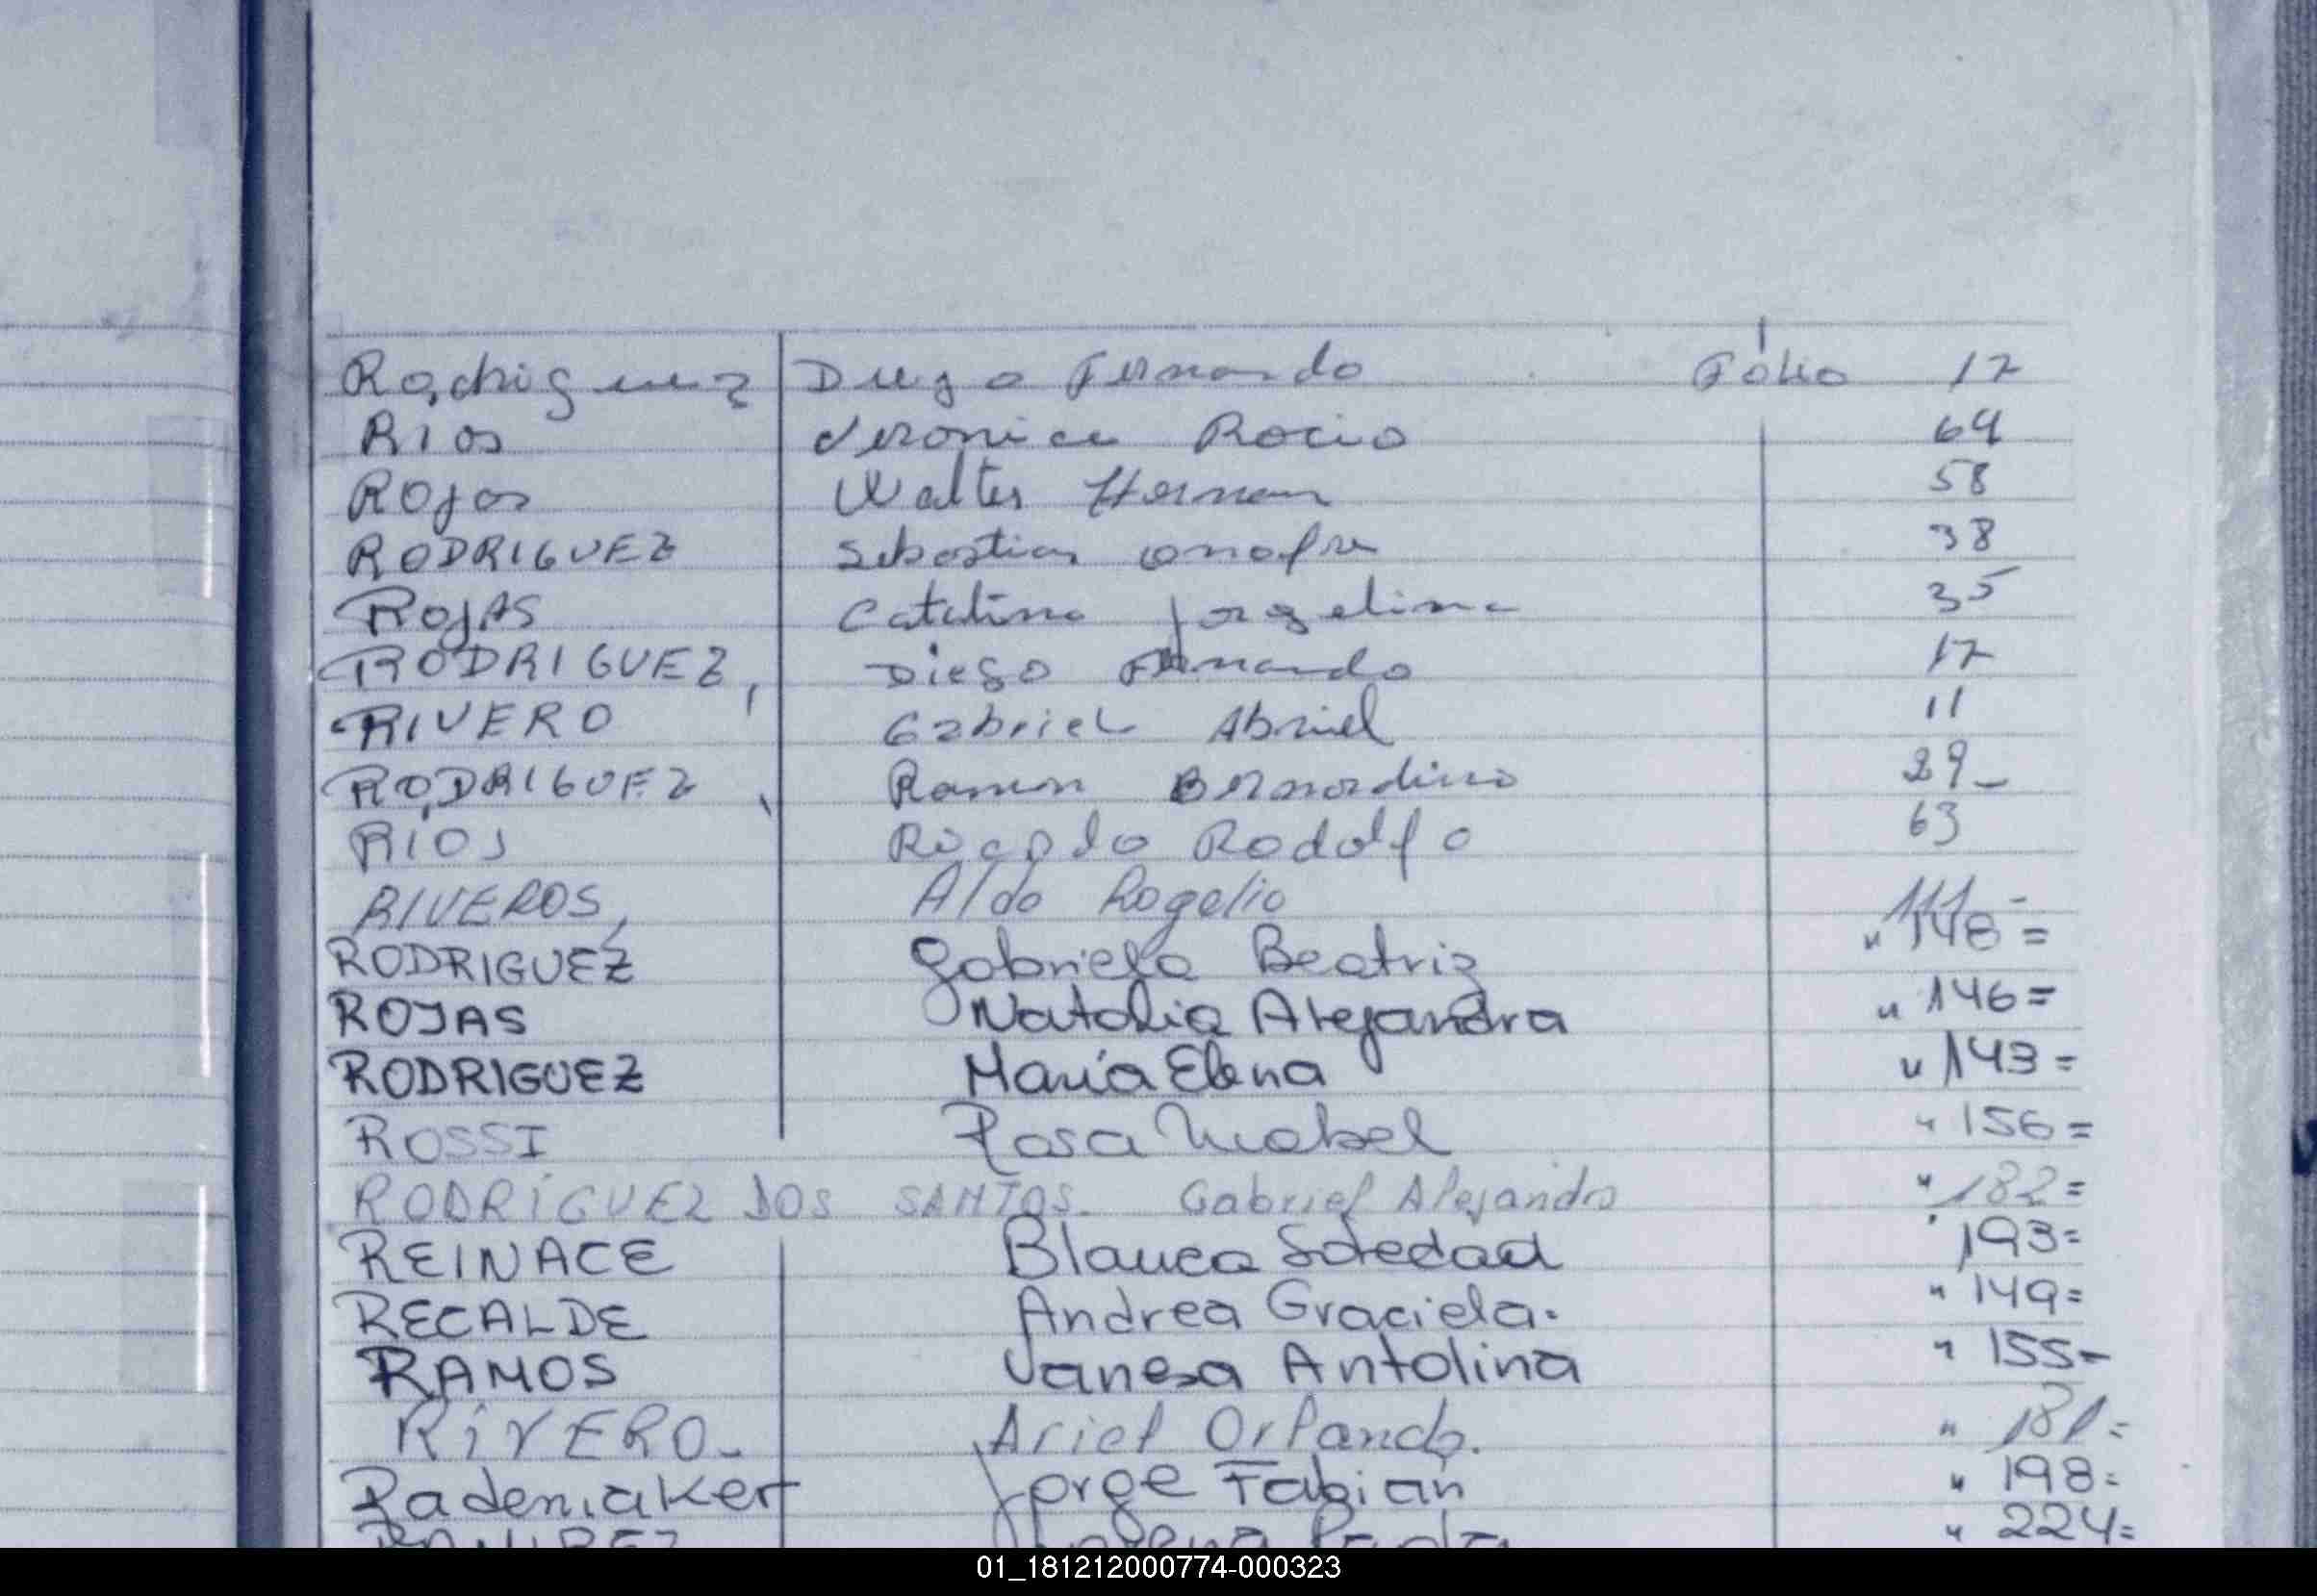 Rodriguez Diego Fernando Fólio 17
RIOS Veronica Rocio 64
Rojas Walter Hernan 58
RODRIGUEZ Sebastian Onofre 38
ROJAS Catalina Jorgelina 35
RODRIGUEZ, Diego Fernando 17
RIVERO Gabriel Abniel 11
RODRIGUEZ, Ramon Bernardino 29_
RIOS Ricardo Rodolfo 63
RIVEROS, Aldo Rogelio 111-
RODRIGUEZ Gabriela Beatriz " 148=
ROJAS Natalia Alejandra " 146=
RODRIGUEZ María Elena " 143=
ROSSI Rosa Mabel " 156=
RODRÍGUEZ DOS SANTOS. Gabriel Alejandro " 182=
REINACE Blanca Soledad " 193=
RECALDE Andrea Graciela. " 149=
RAMOS Vanesa Antolina " 155-
RIVERO- Ariel Orlando. " 181=
Rademaker Jorge Fabián " 198=
RAMIREZ Lorena Paola " 224=
01_181212000774-000323